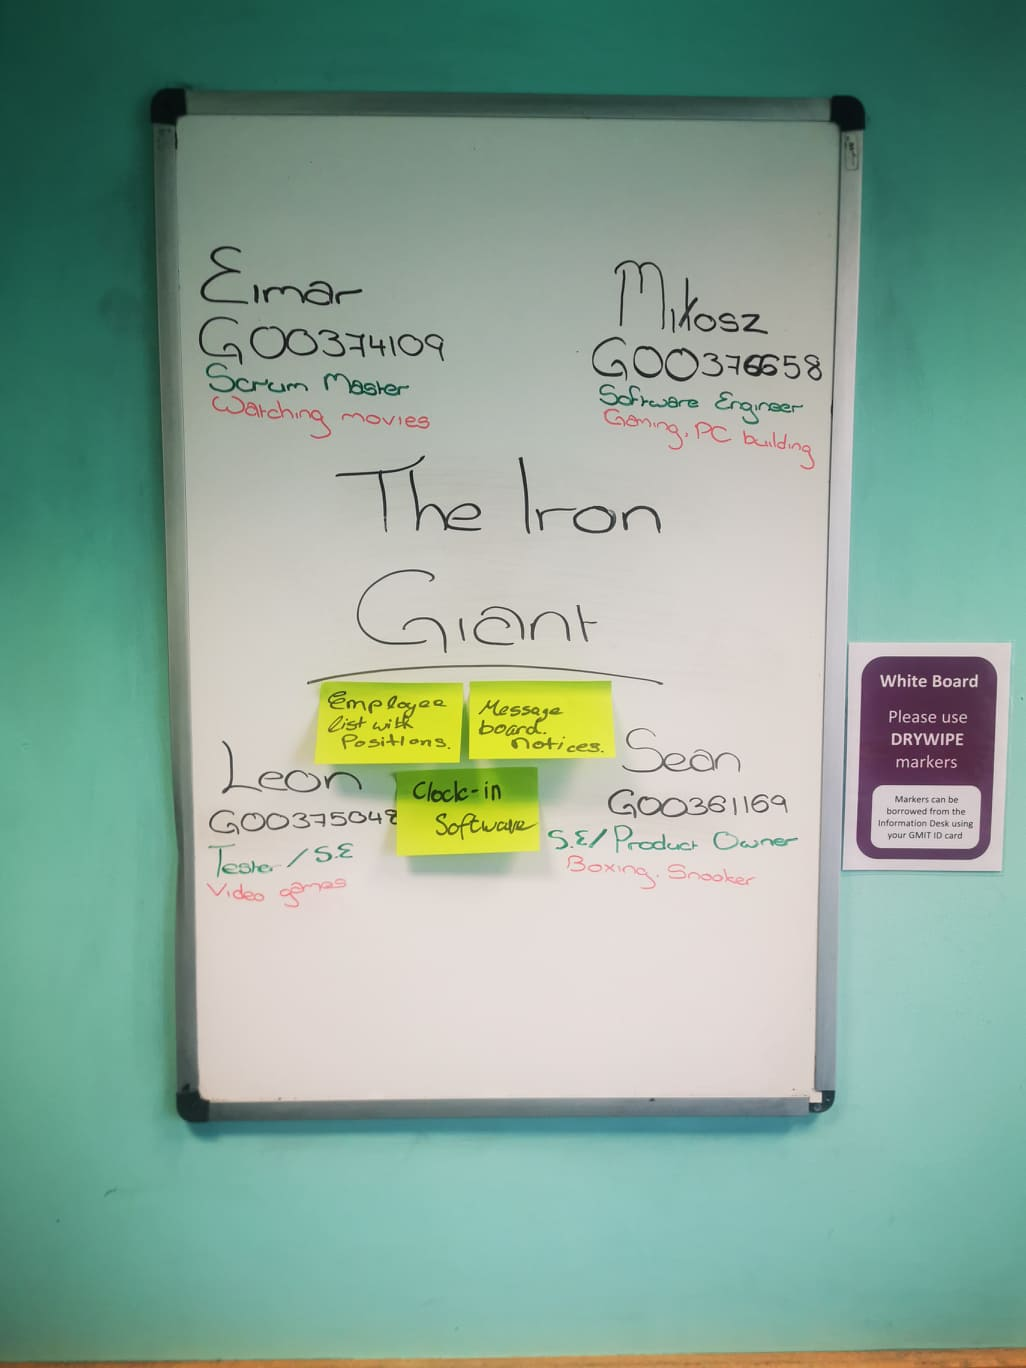 Eimar
G00374109
Scrum Master
Watching movies
Miłosz
G00376658
Software Engineer
Gaming, PC building
The Iron
Giant
Employee
list with
Positions.
Message
board.
notices.
Clock-in
Software
Leon
G00375048
Tester / S.E
Video games
Sean
G00361169
S.E/ Product Owner
Boxing, Snooker
White Board
Please use
DRYWIPE
markers
Markers can be
borrowed from the
Information Desk using
your GMIT ID card